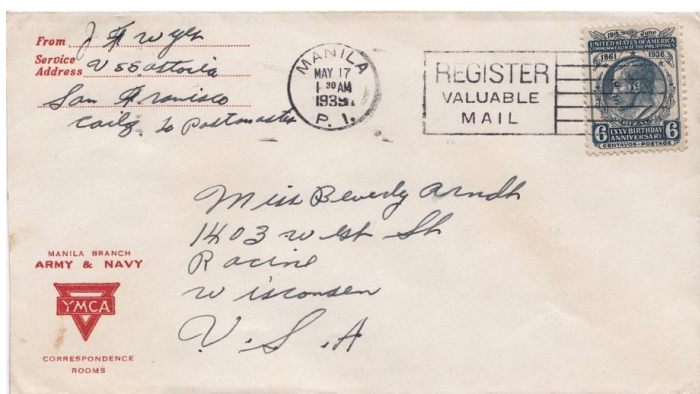 From J H Wyss
Service Address U S S Astoria
San Francisco
Calif to Postmaster
MANILA
MAY 17
1 30 AM
1939
P. I.
REGISTER
VALUABLE
MAIL
19th June
UNITED STATES OF AMERICA
COMMONWEALTH OF THE PHILIPPINES
1861 1936
RIZAL
6 LXXV BIRTHDAY 6
ANNIVERSARY
CENTAVOS-POSTAGE
Miss Beverly Arndt
1403 West St
Racine
Wisconsen
U. S. A
MANILA BRANCH
ARMY & NAVY
YMCA
CORRESPONDENCE
ROOMS